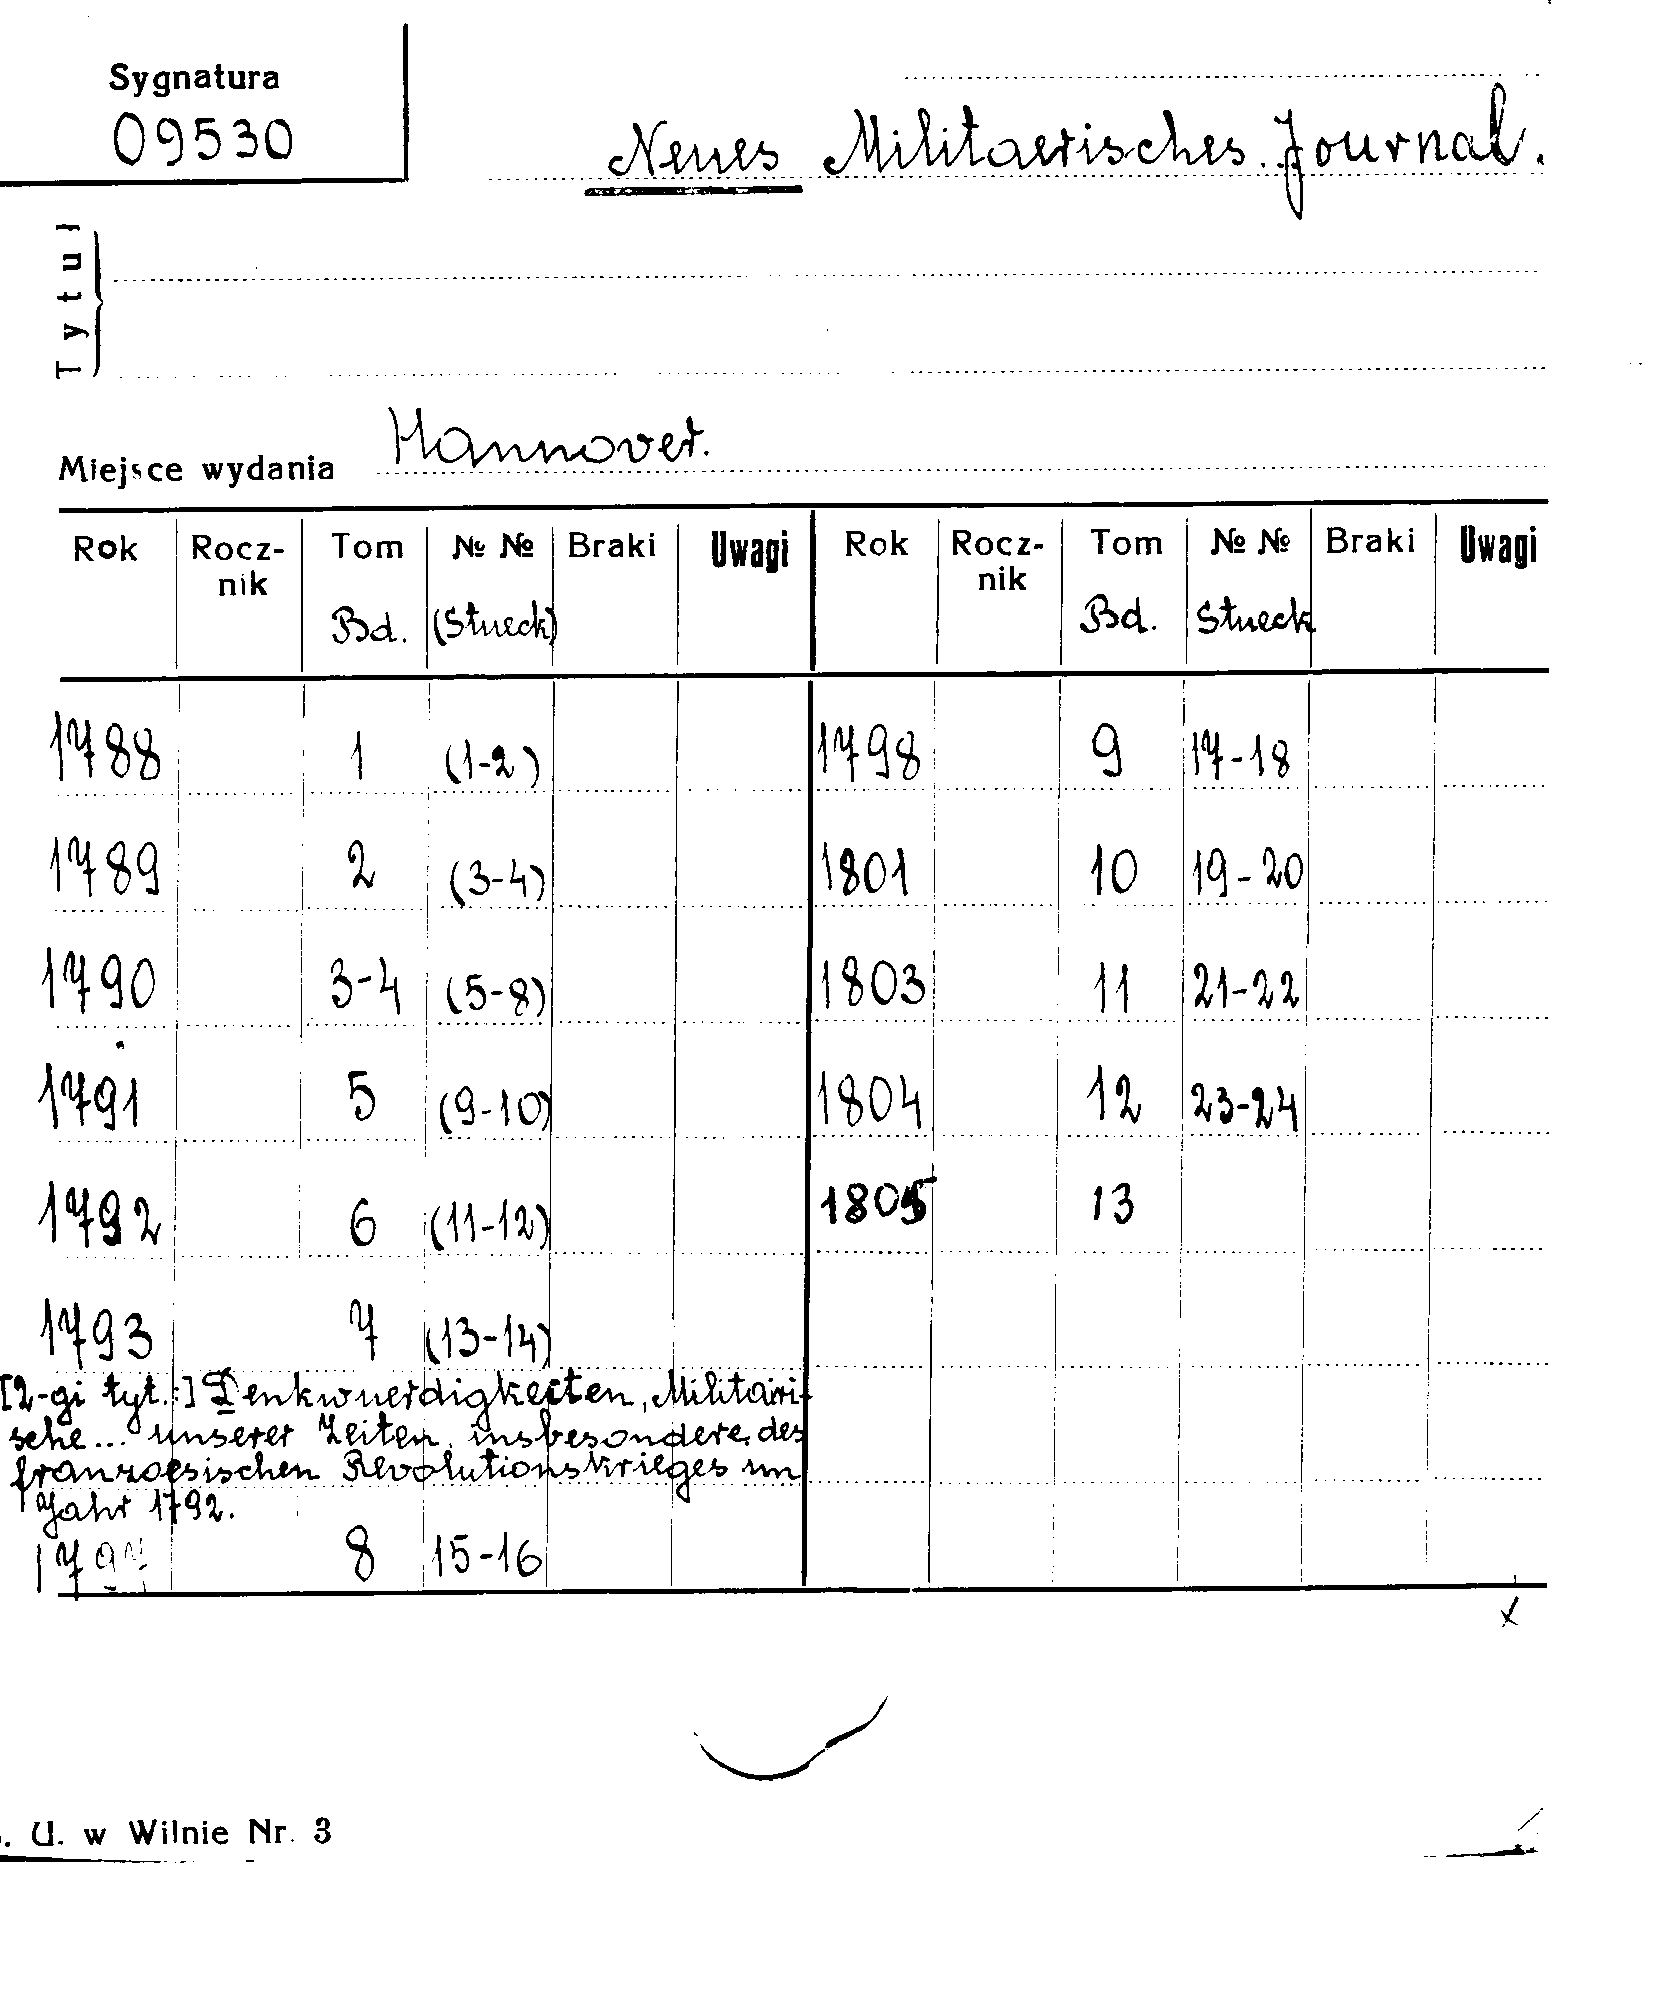 Sygnatura
09530
Neues Militaerisches Journal.
Tytuł
Miejsce wydania Hannover.
Rok Rocz- Tom № № Braki Uwagi Rok Rocz- Tom № № Braki Uwagi
nik nik
Bd. (Stueck) Bd. Stueck
1788 1 (1-2) 1798 9 17-18
1789 2 (3-4) 1801 10 19-20
1790 3-4 (5-8) 1803 11 21-22
1791 5 (9-10) 1804 12 23-24
1792 6 (11-12) 1805 13
1793 7 (13-14)
[2-gi tyt.:] Denkwuerdigkeiten, Militairi-
sche... unserer Zeiten, insbesondere des
franzoesischen Revolutionskrieges im
Jahr 1792.
8 15-16
x
. U. w Wilnie Nr. 3